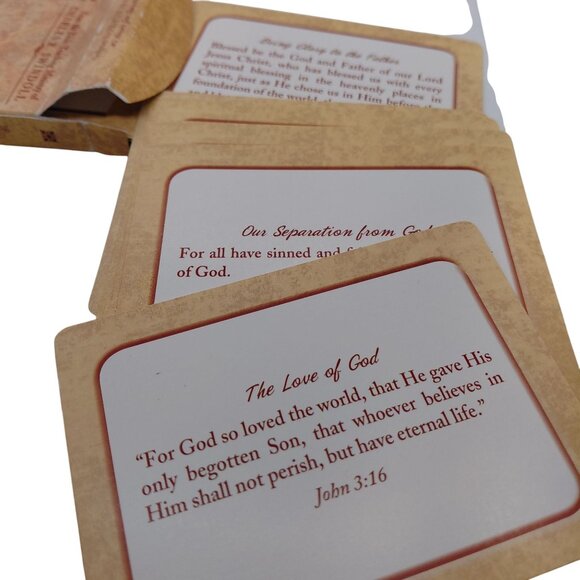 CHARLES
SWINDOLL
Giving Glory to the Father
Blessed be the God and Father of our Lord
Jesus Christ, who has blessed us with every
spiritual blessing in the heavenly places in
Christ, just as He chose us in Him before the
foundation of the world, 
Our Separation from God
For all have sinned and
of God.
The Love of God
“For God so loved the world, that He gave His
only begotten Son, that whoever believes in
Him shall not perish, but have eternal life.”
John 3:16